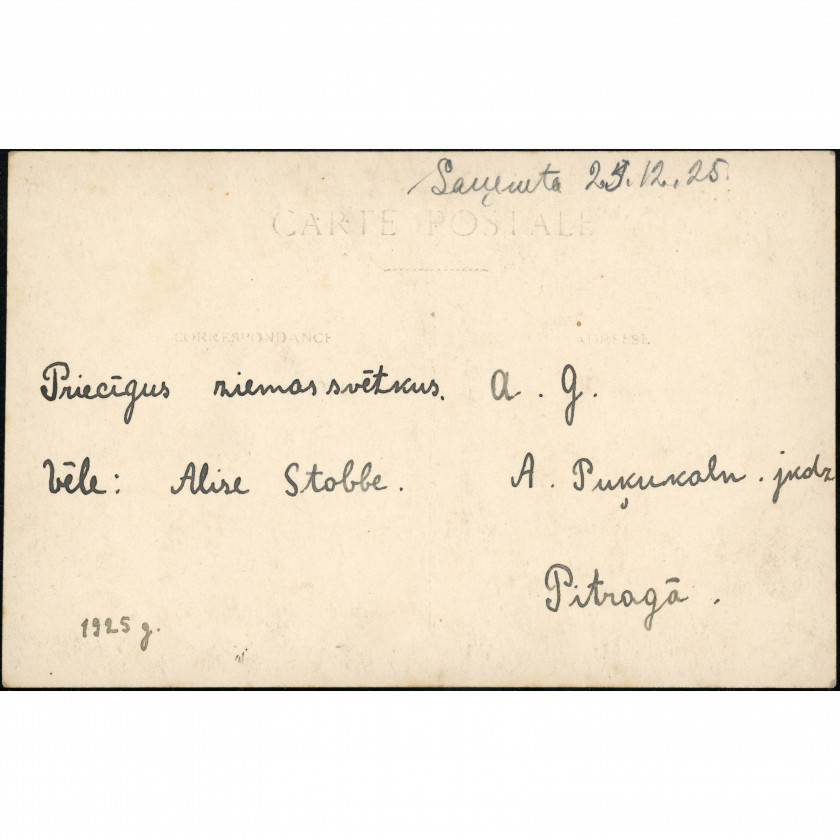 Saņemta 25.12.25.
CARTE POSTALE
CORRESPONDANCE
ADRESSE
Priecīgus ziemas svētkus.
Vēle: Alise Stobbe.
1925 g.
A. G.
A. Puķukaln. jkdz
Pitragā.